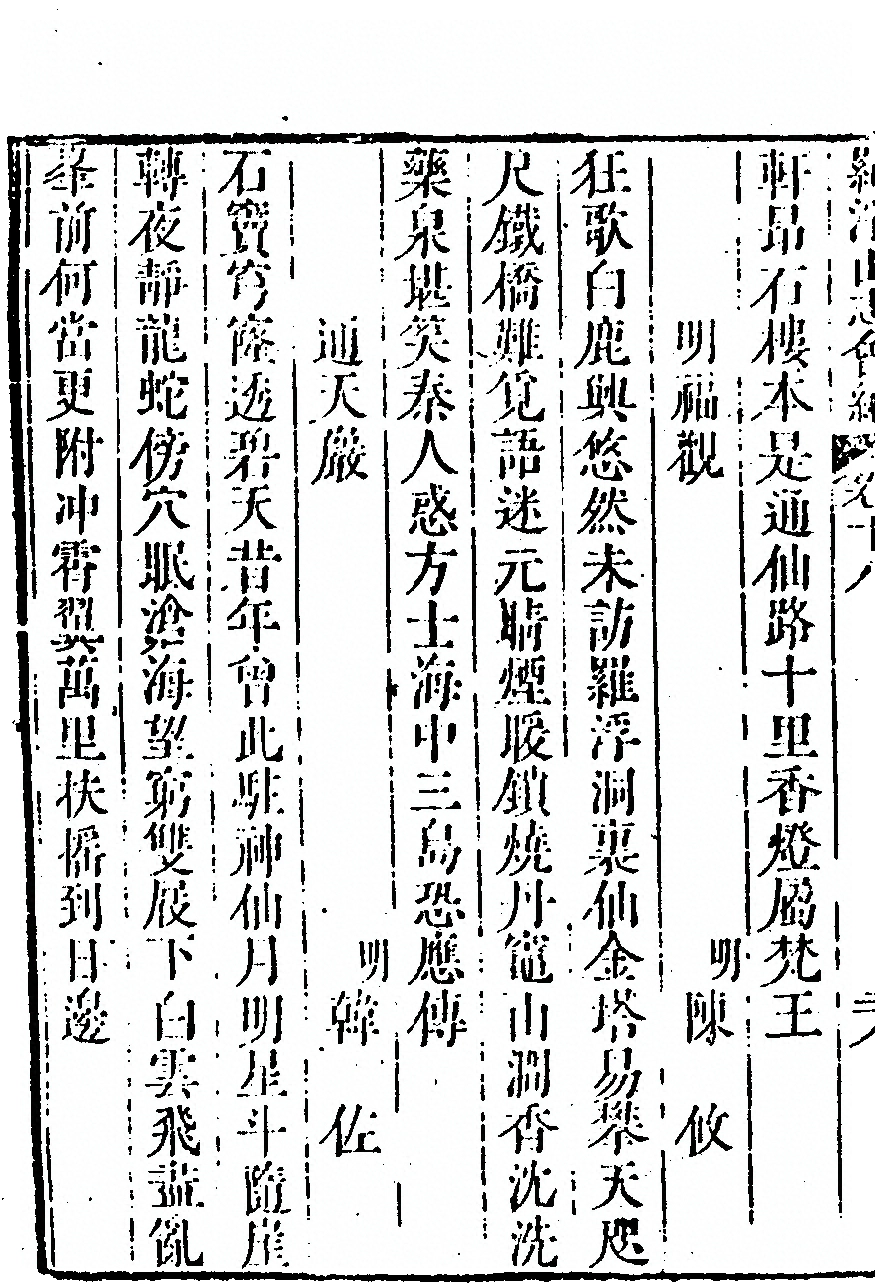 羅浮山志會編 卷十八
軒昂石樓本是通仙路十里香燈屬梵王
明福觀
明陳 攸
狂歌白鹿興悠然未訪羅浮洞裏仙金塔易攀天咫
尺鐵橋難覓語迷元晴煙暖鎖燒丹竈山澗香沈洗
藥泉堪笑秦人惑方士海中三島恐應傳
通天巖
明韓 佐
石竇穹窿透碧天昔年曾此駐神仙月明星斗隨崖
轉夜靜龍蛇傍穴眠滄海望窮雙屐下白雲飛盡亂
峯前何當更附冲霄翼萬里扶搖到日邊